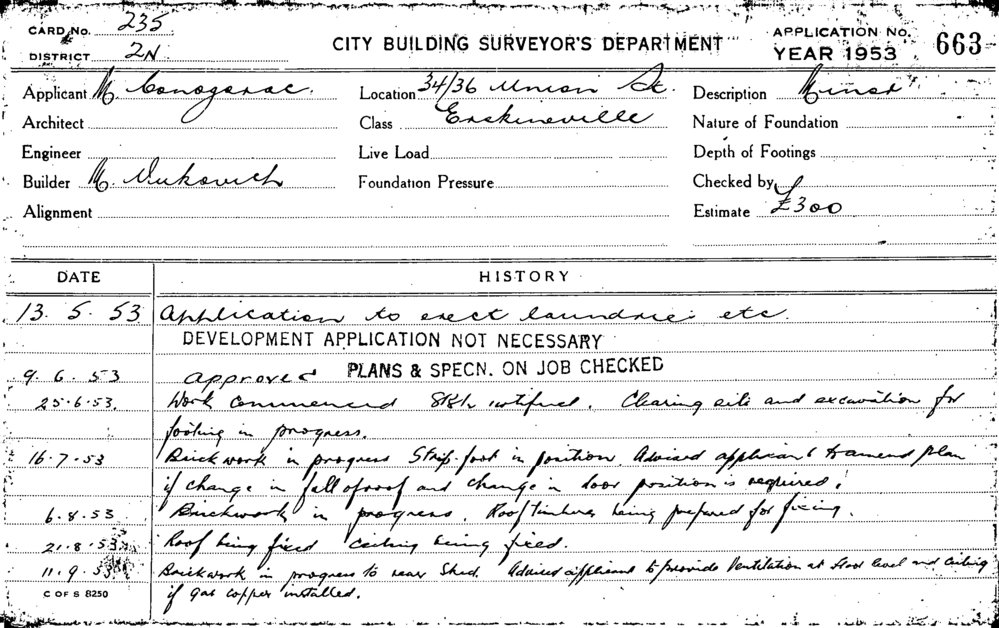 CARD No. 235
DISTRICT 2N
CITY BUILDING SURVEYOR'S DEPARTMENT
APPLICATION No. 663
YEAR 1953
Applicant M.
Location 34/36 Union St.
Description Minor
Architect
Class Erskineville
Nature of Foundation
Engineer
Live Load
Depth of Footings
Builder M. Vukovich
Foundation Pressure
Checked by
Alignment
Estimate £300
DATE HISTORY
13. 5. 53 Application to erect laundries etc.
DEVELOPMENT APPLICATION NOT NECESSARY
9. 6. 53 approved PLANS & SPECN. ON JOB CHECKED
25.6.53. Work commenced notified. Clearing site and excavation for
footing in progress.
16.7.53 Brickwork in progress Strip-foot in position. Advised applicant to amend plan
if change in fall of roof and change in door position is required.
6.8.53 Brickwork in progress. Roof timbers being prepared for fixing.
21.8.53 Roof being fixed Ceiling being fixed.
11.9.53 Brickwork in progress to rear Shed. Advised applicant to provide Ventilation at floor level and Ceiling
C OF S 8250 if gas copper installed.